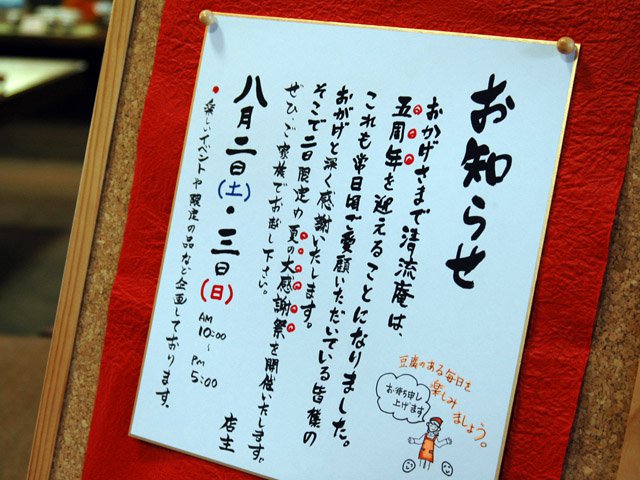 お知らせ
おかげさまで清流庵は、
五周年を迎えることになりました。
これも常日頃ご愛顧いただいている皆様の
おがげと深く感謝いたします。
そこで二日限定の夏の大感謝祭を開催いたします。
ぜひ、ご家族でお越し下さい。
店主
八月二日(土)・三日(日)
AM
10:00
〜
PM
5:00
楽しいイベントや限定の品など企画しております。
豆腐のある毎日を
楽しみましょう。
お待ち申し
上げます